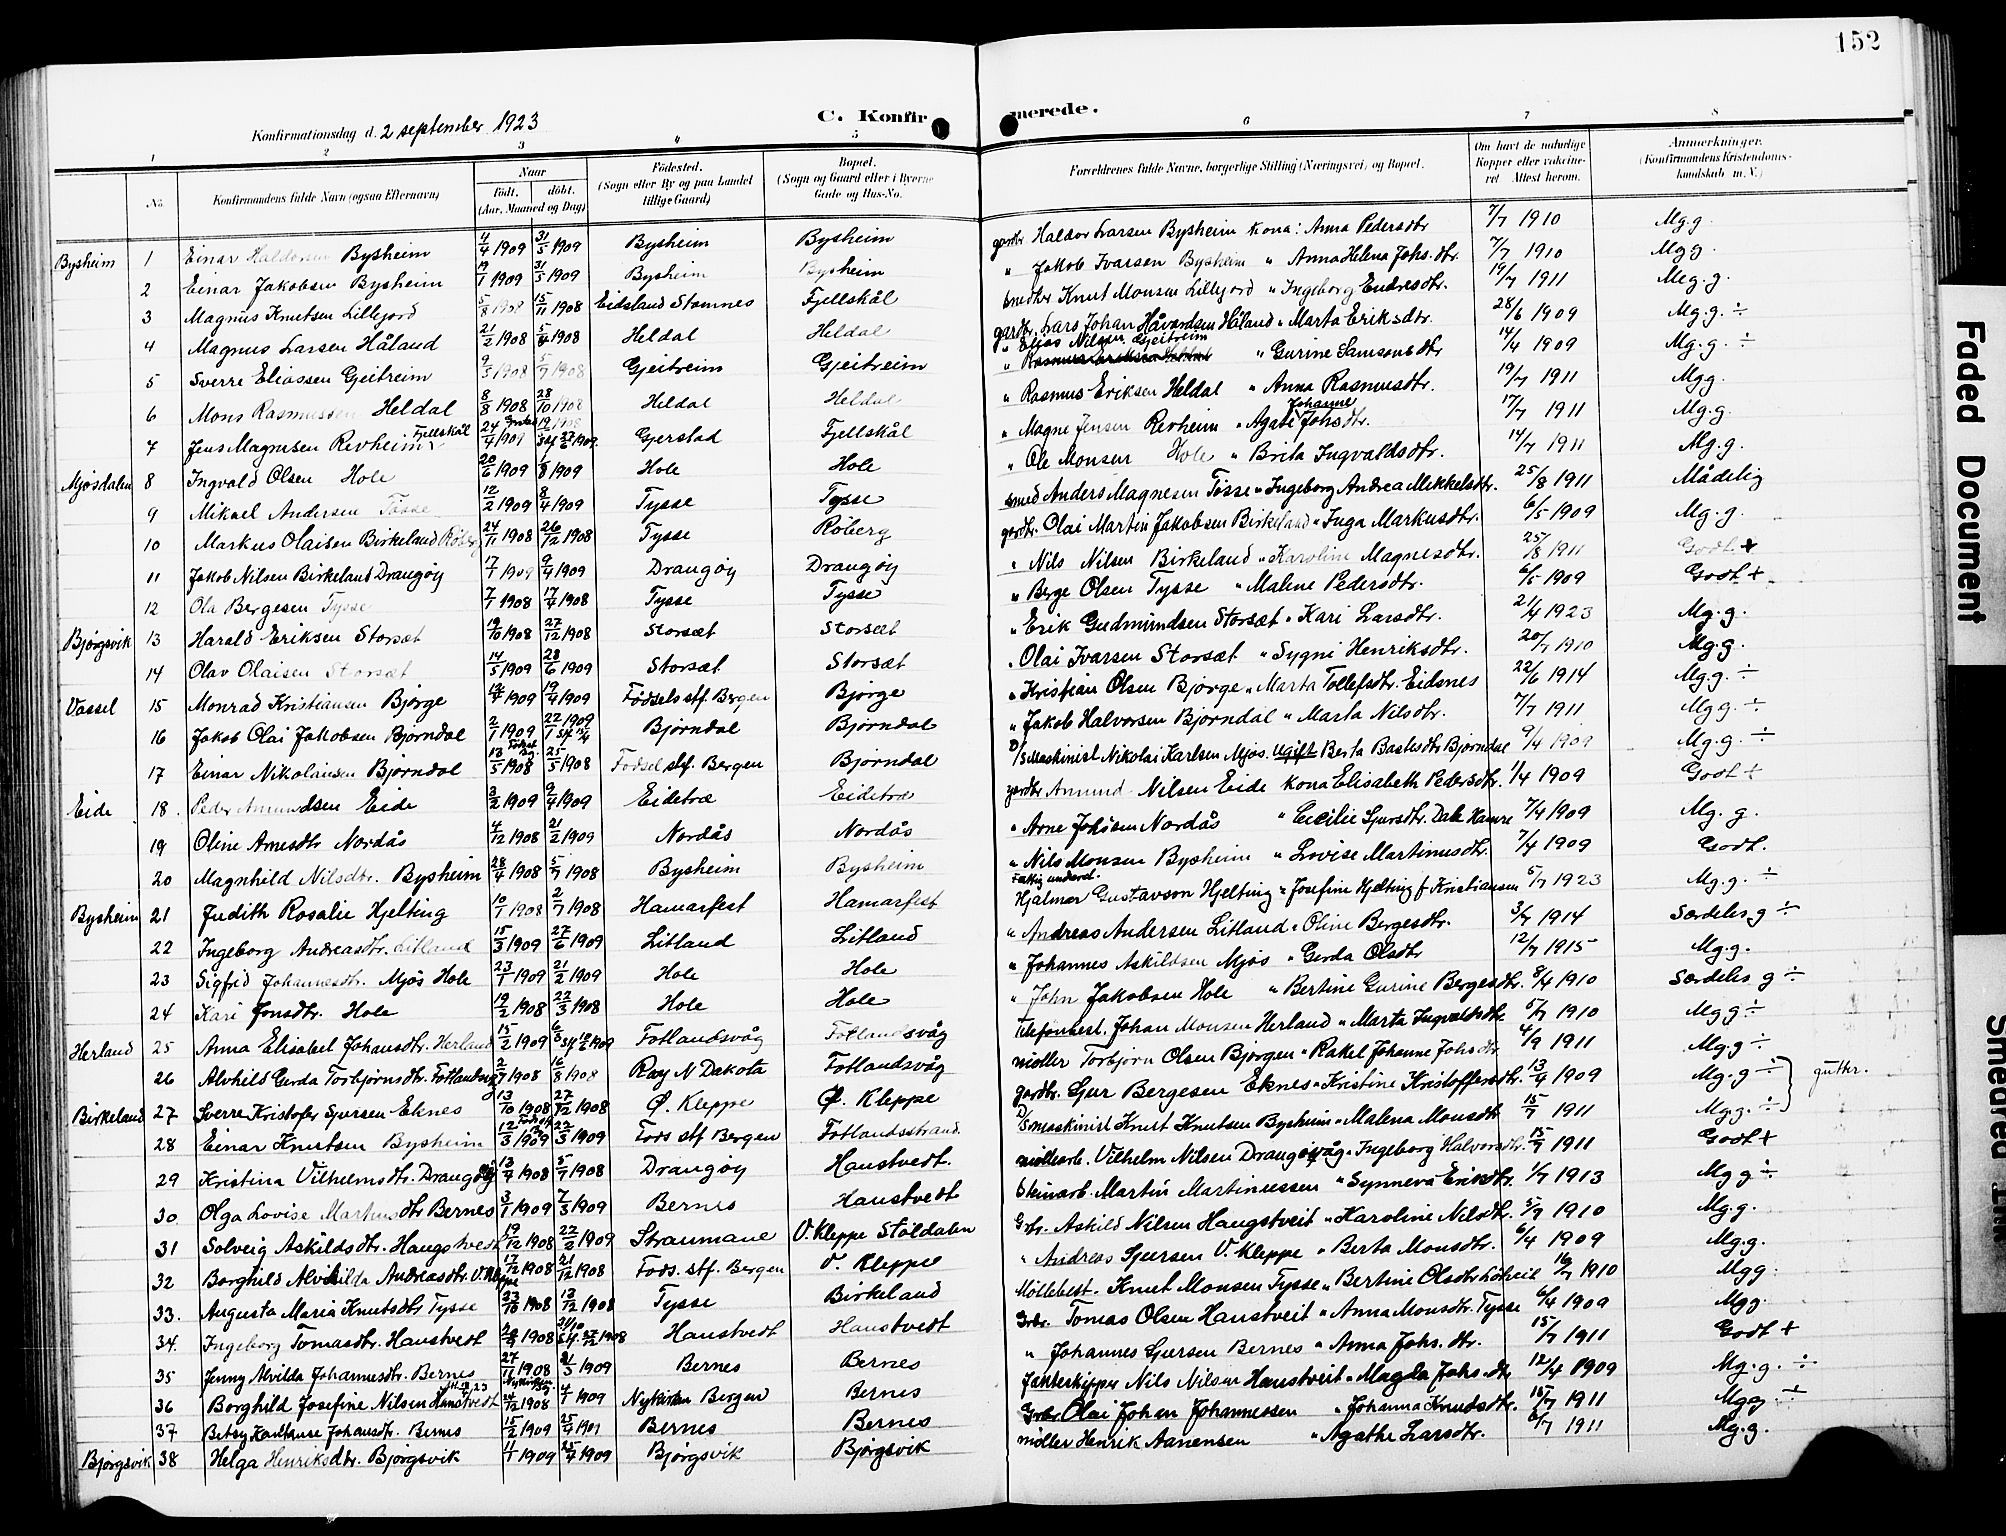 152
C. Konfirmerede.
Konfirmationsdag d. 2 september 1923
1 2 3 4 5 6 7 8
No. Konfirmandens fulde Navn (ogsaa Efternavn) Naar født. døbt. (Aar, Maaned og Dag) Fødested. (Sogn eller By og paa Landet tillige Gaard) Bopæl. (Sogn og Gaard eller i Byerne Gade og Hus-No. Forældrenes fulde Navne, borgerlige Stilling (Næringsvei) og Bopæl. Om havt de naturlige Kopper eller vakcineret Attest herom. Anmerkninger. (Konfirmandens Kristendomskundskab m. V.)
Bysheim 1 Einar Haldorsen Bysheim 4/4 1909 31/5 1909 Bysheim Bysheim gardbr Haldor Larsen Bysheim Kona: Anna Pedersdtr 7/7 1910 Mg.g.
2 Einar Jakobsen Bysheim 19/1 1909 31/5 1909 Bysheim Bysheim " Jakob Ivarsen Bysheim " Anna Helena Johs.dtr. 7/7 1910 Mgg.
3 Magnus Knutsen Lillejord 5/8 1908 15/11 1908 Eidsland Stamnes Fjellskål Knut Monsen Lillejord " Ingeborg Endresdtr. 19/7 1911 Mg.g.
4 Magnus Larsen Håland 21/2 1908 5/4 1908 Heldal Heldal gardbr. Lars Johan Håvardsen Håland " Marta Eriksdtr. 28/6 1909 Mg.g. ÷
5 Sverre Eliassen Gjeitreim 9/5 1908 5/7 1908 Gjeitreim Gjeitreim " Elias Nilsen Gjeitreim " Gurine Samsonsdtr 14/4 1909 Mg.g. ÷
6 Mons Rasmussen Heldal 8/8 1908 28/10 1908 Heldal Heldal " Rasmus Eriksen Heldal " Anna Rasmusdtr. 19/7 1911 Mgg.
7 Jens Magnusen Revheim Fjellskål 24/4 1909 Gjerstad Fjellskål " Magne Jensen Revheim " Agate Johanne Johsdtr. 17/7 1911 Mg.g.
Mjøsdalen 8 Ingvald Olsen Hole 20/6 1909 1/8 1909 Hole Hole " Ole Monsen Hole " Brita Ingvaldsdtr. 14/7 1911 Mg.g.
9 Mikael Andersen Tøsse 12/2 1909 8/4 1909 Tysse Tysse smed Anders Magnesen Tøsse " Ingeborg Andrea Mikkelsdtr. 25/8 1911 Mådelig
10 Markus Olaisen Birkeland Røberg 24/11 1908 26/12 1908 Tysse Røberg gardbr. Olai Martin Jakobsen Birkeland " Inga Markusdtr. 6/5 1909 Mg.g.
11 Jakob Nilsen Birkeland Draugøy 17/1 1909 9/4 1909 Draugøy Draugøy " Nils Nilsen Birkeland " Karoline Magnesdtr. 25/8 1911 Godt +
12 Ola Bergesen Tysse 7/1 1908 17/4 1908 Tysse Tysse " Berge Olsen Tysse " Maline Pedersdtr. 6/5 1909 Godt +
Bjørgsvik 13 Harald Eriksen Storsæt 19/10 1908 27/12 1908 Storsæt Storsæt " Erik Gudmundsen Storsæt " Kari Larsdtr. 21/4 1923 Mg.g.
14 Olav Olaisen Storsæt 14/5 1909 28/6 1909 Storsæt Storsæt " Olai Ivarsen Storsæt " Sygni Henriksdtr. 20/7 1910 Mg.g.
Vassel 15 Monrad Kristiansen Bjørge 1909 19/4 1909 Fødsels stf. Bergen Bjørge " Kristian Olsen Bjørge " Marta Tollefsdtr. Eidsnes 22/6 1914 Mg.g. ÷
16 Jakob Olai Jakobsen Bjørndal 2/1 1909 22/1 1909 Bjørndal Bjørndal " Jakob Halvorsen Bjørndal " Marta Nilsdtr. 7/7 1911 Mg.g. ÷
17 Einar Nikolaisen Bjørndal 13/5 1908 25/5 1908 Fødsel stf. Bergen Bjørndal D/S Maskinist Nikolai Karlsen Mjøs. Ugift Berta Bastisdtr Bjørndal 9/4 1909 Mg.g. ÷
Eide 18. Peder Amundsen Eide 3/2 1909 9/4 1909 Eidetræ Eidetræ gardbr Amund Nilsen Eide Kona Elisabeth Pedersdtr. 1/4 1909 Godt +
19 Oline Arnesdtr Nordås 4/12 1908 21/2 1909 Nordås Nordås " Arne Johssen Nordås " Cecilie Sjursdtr. Dale Hamre 7/4 1909 Mg.g.
20 Magnhild Nilsdtr. Bysheim 28/4 1908 5/7 1908 Bysheim Bysheim " Nils Monsen Bysheim " Lovise Martinusdtr. 7/4 1909 Godt.
Bysheim 21 Judith Rosalie Hjelting 10/1 1908 2/7 1908 Hamarfest Hamarfest Fattig underst. Hjalmar Gustavson Hjelting " Josefine Hjelting f Kristiansen 5/7 1923 Mg.g. ÷
22 Ingeborg Andreasdtr. Litland 15/3 1909 27/6 1909 Litland Litland " Andreas Andersen Litland " Oline Bergesdtr. 3/7 1914 Særdeles g ÷
23 Sigfrid Johannesdtr. Mjøs Hole 23/1 1909 21/2 1909 Hole Hole " Johannes Askildsen Mjøs " Gerda Olsdtr 12/7 1915 Mg.g.
24 Kari Jonsdtr. Hole 19/2 1908 22/3 1908 Hole Hole " John Jakobsen Hole " Bertine Gurine Bergesdtr. 8/4 1910 Særdeles g ÷
Herland 25 Anna Elisabet Johansdtr. Herland 15/2 1909 Fotlandsvåg Fotlandsvåg Telefonbest. Johan Monsen Herland " Marta Ingvaldsdtr. 5/7 1910 Mgg ÷
26 Alvhild Gerda Torbjørnsdtr. Fotlandsvåg 1908 16/8 1908 Ray N Dakota Fotlandsvåg møller Torbjørn Olsen Bjørgen " Rakel Johanne Johsdtr 4/9 1911 Mg.g ÷
Birkeland 27 Sverre Kristofer Sjursen Eknes 13/10 1908 27/12 1908 Ø. Kleppe Ø. Kleppe gardbr. Sjur Bergesen Eknes " Kristine Kristoffersdtr. 13/4 1909 Mg.g ÷ } gutter.
28 Einar Knutsen Bysheim 12/3 1909 22/3 1909 Føds stf Bergen Fotlandsstrand D/S maskinist Knut Knutsen Bysheim " Malena Monsdtr 15/7 1911 Mg.g. ÷
29 Kristina Vilhelmsdtr. Draugøy 13/4 1908 5/7 1908 Draugøy Haustvedt. møllearb. Vilhelm Nilsen Draugøyvåg " Ingeborg Halvorsdtr. 15/9 1911 Godt +
30 Olga Lovise Martinsdtr Bernes 3/1 1909 7/3 1909 Bernes Haustvedt Skinarb. Martin Martinussen " Synneva Eriksdtr. 1/7 1913 Mgg ÷
31 Solveig Askildsdtr. Haugstvedt 19/12 1908 22/2 1909 Straumane V. Kleppe Støldalen Grbr. Askild Nilsen Haugstveit " Karoline Nilsdtr. 5/7 1910 Mg.g.
32 Borghild Alvhilda Andreasdtr. V. Kleppe 17/12 1908 21/12 1908 Føds. stf. Bergen V. Kleppe " Andreas Sjursen V. Kleppe " Berta Monsdtr. 6/4 1909 Mg.g.
33. Augusta Maria Knutsdtr Tysse 23/10 1908 13/12 1908 Tysse Birkeland Møllebest. Knut Monsen Tysse " Bertine Olsdtr 16/7 1910 Mgg.
34. Ingeborg Tomasdtr. Haustvedt 1908 Haustvedt Haustvedt Grbr. Tomas Olsen Haustveit " Anna Monsdtr. Tysse 6/4 1909 Mgg.
35 Jenny Alvilda Johannesdtr. Bernes 27/11 1908 21/3 1909 Bernes Bernes " Johannes Sjursen Bernes " Anna Johs.dtr. 15/7 1911 Godt +
36 Borghild Josefine Nilsen Haustvedt 24/12 1908 4/1 1909 Nykirken Bergen Bernes Jakteskipper Nils Nilsen Haustveit " Magda Johs.dtr 12/4 1909 Mg.g. ÷
37 Betsy Kardause Johansdtr. Bernes 15/2 1909 25/4 1909 Bernes Bernes Grbr. Olai Johan Johannessen " Johanna Knudsdtr. 15/7 1911 Mgg ÷
Bjørgsvik 38 Helga Henriksdtr. Bjørgsvik 11/1 1909 25/4 1909 Bjørgsvik Bjørgsvik møller Henrik Aanensen " Agathe Larsdtr. 6/7 1911 Mg.g.
Faded Document
Smeared Ink